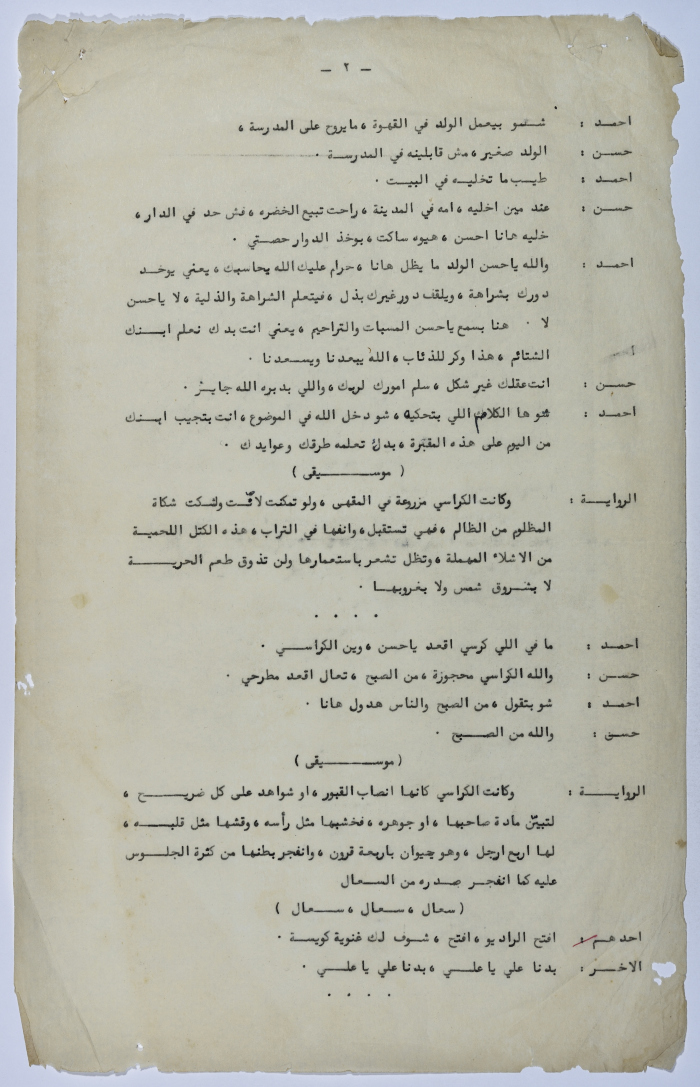 - ٢ -
احمد : شمو بيعمل الولد في القهوة ، مايروح على المدرسة ،
حسن : الولد صغير ، مش قابلينه في المدرسة ٠
احمد : طيب ما تخليه في البيت ٠
حسن : عند مين اخليه ، امه في المدينة ، راحت تبيع الخضره ، فش حد في الدار ،
خليه هانا احسن ، هيوه ساكت ، بوخذ الدوار حصتي ٠
احمد : والله ياحسن الولد ما يظل هانا ، حرام عليك الله يحاسبك ، يعني يوخد
دورك بشراهة ، ويلقف دور غيرك بذل ، فيتعلم الشراهة والذلية ، لا ياحسن
لا ٠ هنا بسمع ياحسن المسبات والتراحيم ، يعني انت بدك تعلم ابنك
الشتائم ، هذا وكر للذئاب ، الله يبعدنا ويسعدنا ٠
حسن : انت عقلك غير شكل ، سلم امورك لربك ، واللي بدبره الله جايز ٠
احمد : شو ها الكلام اللي بتحكيه ، شو دخل الله في الموضوع ، انت بتجيب ابنك
من اليوم على هذه المقبرة ، بدك تعلمه طرقك وعوايدك ٠
( موسيقى )
الرواية : وكانت الكراسي مزروعة في المقهى ، ولو تمكنت لاقّت ولشكت شكاة
المظلوم من الظالم ، فهي تستقبل ، وانفها في التراب ، هذه الكتل اللحمية
من الاشلاء المهملة ، وتظل تشعر باستعمارها ولن تذوق طعم الحرية
لا بشروق شمس ولا بغروبها ٠
٠ ٠ ٠ ٠
احمد : ما في اللي كرسي اقعد ياحسن ، وين الكراسي ٠
حسن : والله الكراسي محجوزة ، من الصبح ، تعال اقعد مطرحي ٠
احمد : شو بتقول ، من الصبح والناس هدول هانا ٠
حسن : والله من الصبح ٠
( موسيقى )
الرواية : وكانت الكراسي كانها انصاب القبور ، او شواهد على كل ضريح ،
لتبيّن مادة صاحبها ، او جوهره ، فخشبها مثل رأسه ، وقشها مثل قلبه ،
لها اربع ارجل ، وهو حيوان باربعة قرون ، وانفجر بطنها من كثرة الجلوس
عليه كما انفجر صدره من السعال
( سعال ، سعال ، سعال )
احدهم : افتح الراديو ، افتح ، شوف لك غنوية كويسة ٠
الاخر : بدنا علي يا علي ، بدنا علي يا علي ٠
٠ ٠ ٠ ٠